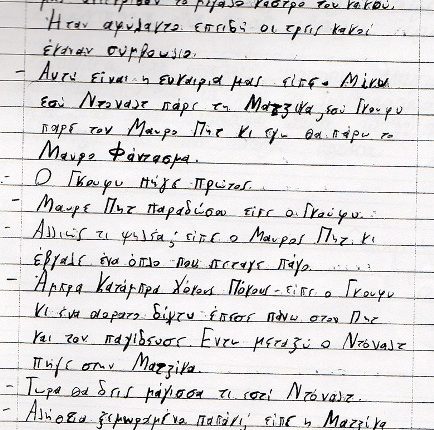 το μεγαλο καστρο του κακου.
Ηταν αφυλαχτο επειδη οι τρεις κακοι
εκαναν συμβουλιο.
- Αυτη ειναι η ευκαιρια μας ειπε ο Μικυ
εσυ Ντοναλτ παρε τη Ματζικα, εσυ Γκουφυ
παρε τον Μαυρο Πητ κι εγω θα παρω το
Μαυρο Φαντασμα.
- Ο Γκουφυ πηγε πρωτος.
- Μαυρε Πητ παραδωσου ειπε ο Γκουφυ.
- Αλλιως τι ψηλεα; ειπε ο Μαυρος Πητ κι
εβγαλε ενα οπλο που πεταγε παγο.
- Αμπρα Καταμπρα Χοκους Ποκους - ειπε ο Γκουφυ
κι ενα αορατο διχτυ επεσε πανω στον Πητ
και τον παγιδευσε. Εντω μεταξυ ο Ντοναλτ
πηγε στην Ματζικα.
- Τωρα θα δεις μαγισσα τι εστι Ντοναλτ.
- Αληθεια ξεμωραμενο παπακι; ειπε η Ματζικα